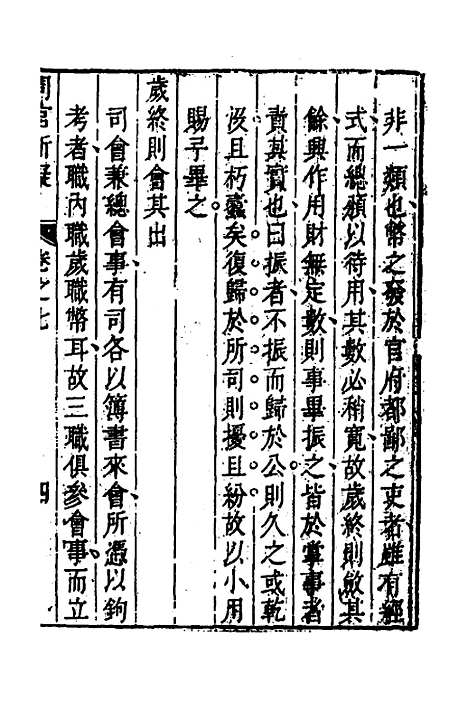 非一類也幣之發於官府都鄙之吏者雖有經
式而總頒以待用其數必稍寬故歲終則斂其
餘興作用財無定數則事畢振之皆於掌事者
責其實也曰振者不振而歸於公則久之或乾
沒且朽蠹矣復歸於所司則擾且紛故以小用
賜予畢之
歲終則會其出
司會兼總會事有司各以簿書來會所憑以鉤
考者職內職歲職幣耳故三職俱參會事而立
周官析疑
卷之七
四